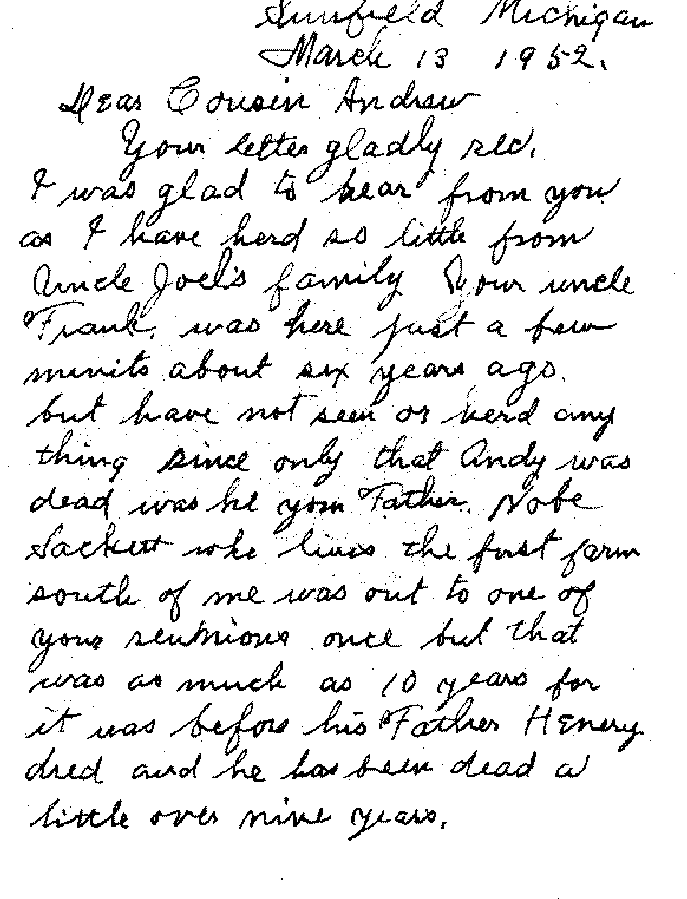 Sunfield Michigan
March 13 1952.
Dear Cousin Andrew
Your letter gladly rec.
I was glad to hear from you
as I have herd so little from
Uncle Joel's family Your uncle
Frank, was here just a few
minits about six years ago.
but have not seen or herd any
thing since only that Andy was
dead was he your Father. Nobe
Sackett who lives the first farm
south of me was out to one of
your reunions once but that
was as much as 10 years for
it was before his Father Henery
died and he has been dead a
little over nine years.